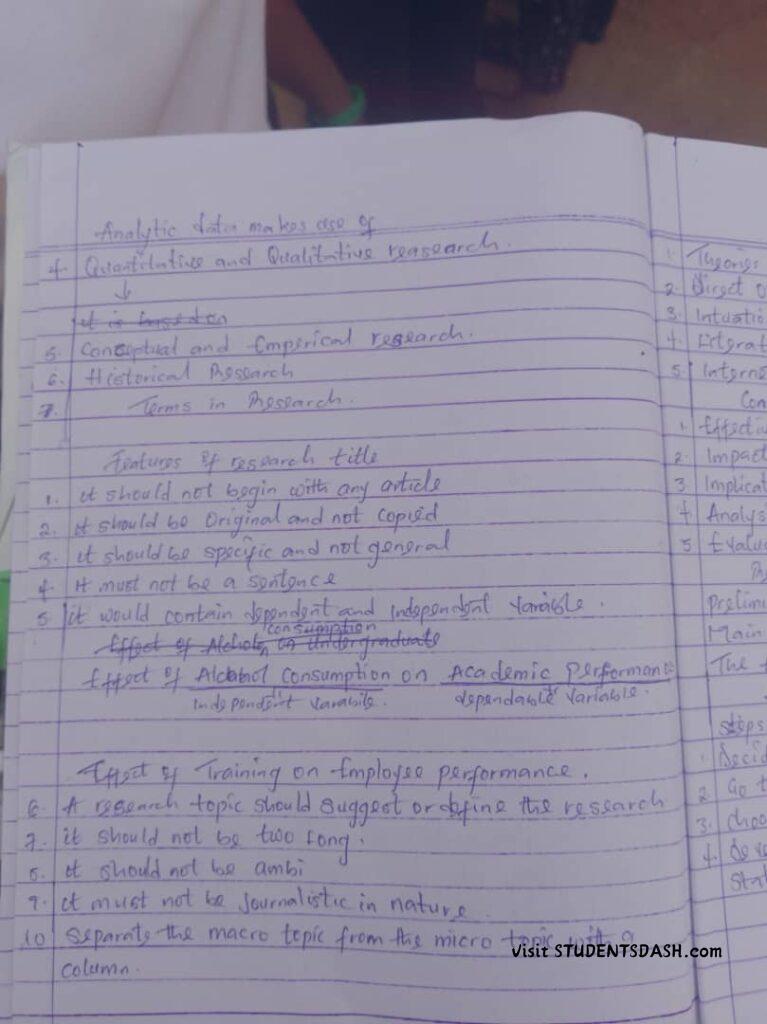 Analytic data makes use of
4. Quantitative and Qualitative reasearch.
it is based on
5. Conceptual and Emperical research.
6. Historical Research
7. Terms in Research.
Features of research title
1. it should not begin with any article
2. it should be Original and not copied
3. it should be specific and not general
4. It must not be a sentence
5. it would contain dependent and independent variable.
consumption
Effect of Alcohol on Undergraduate
Effect of Alcohol Consumption on Academic performance
independent variable. dependable variable.
Effect of Training on Employee performance.
6. A research topic should suggest or define the research
7. it should not be two long.
8. it should not be ambi
9. it must not be journalistic in nature.
10 separate the macro topic from the micro topic with a
column.
1. Theories
2. Direct
3.
4.
5.
Con
1. Effectiv
2. Impact
3. Implica
4. Analys
5. Evalu
prelimi
Main
The
steps
1. Decid
2. Go t
3. choo
4.
visit STUDENTSDASH.com